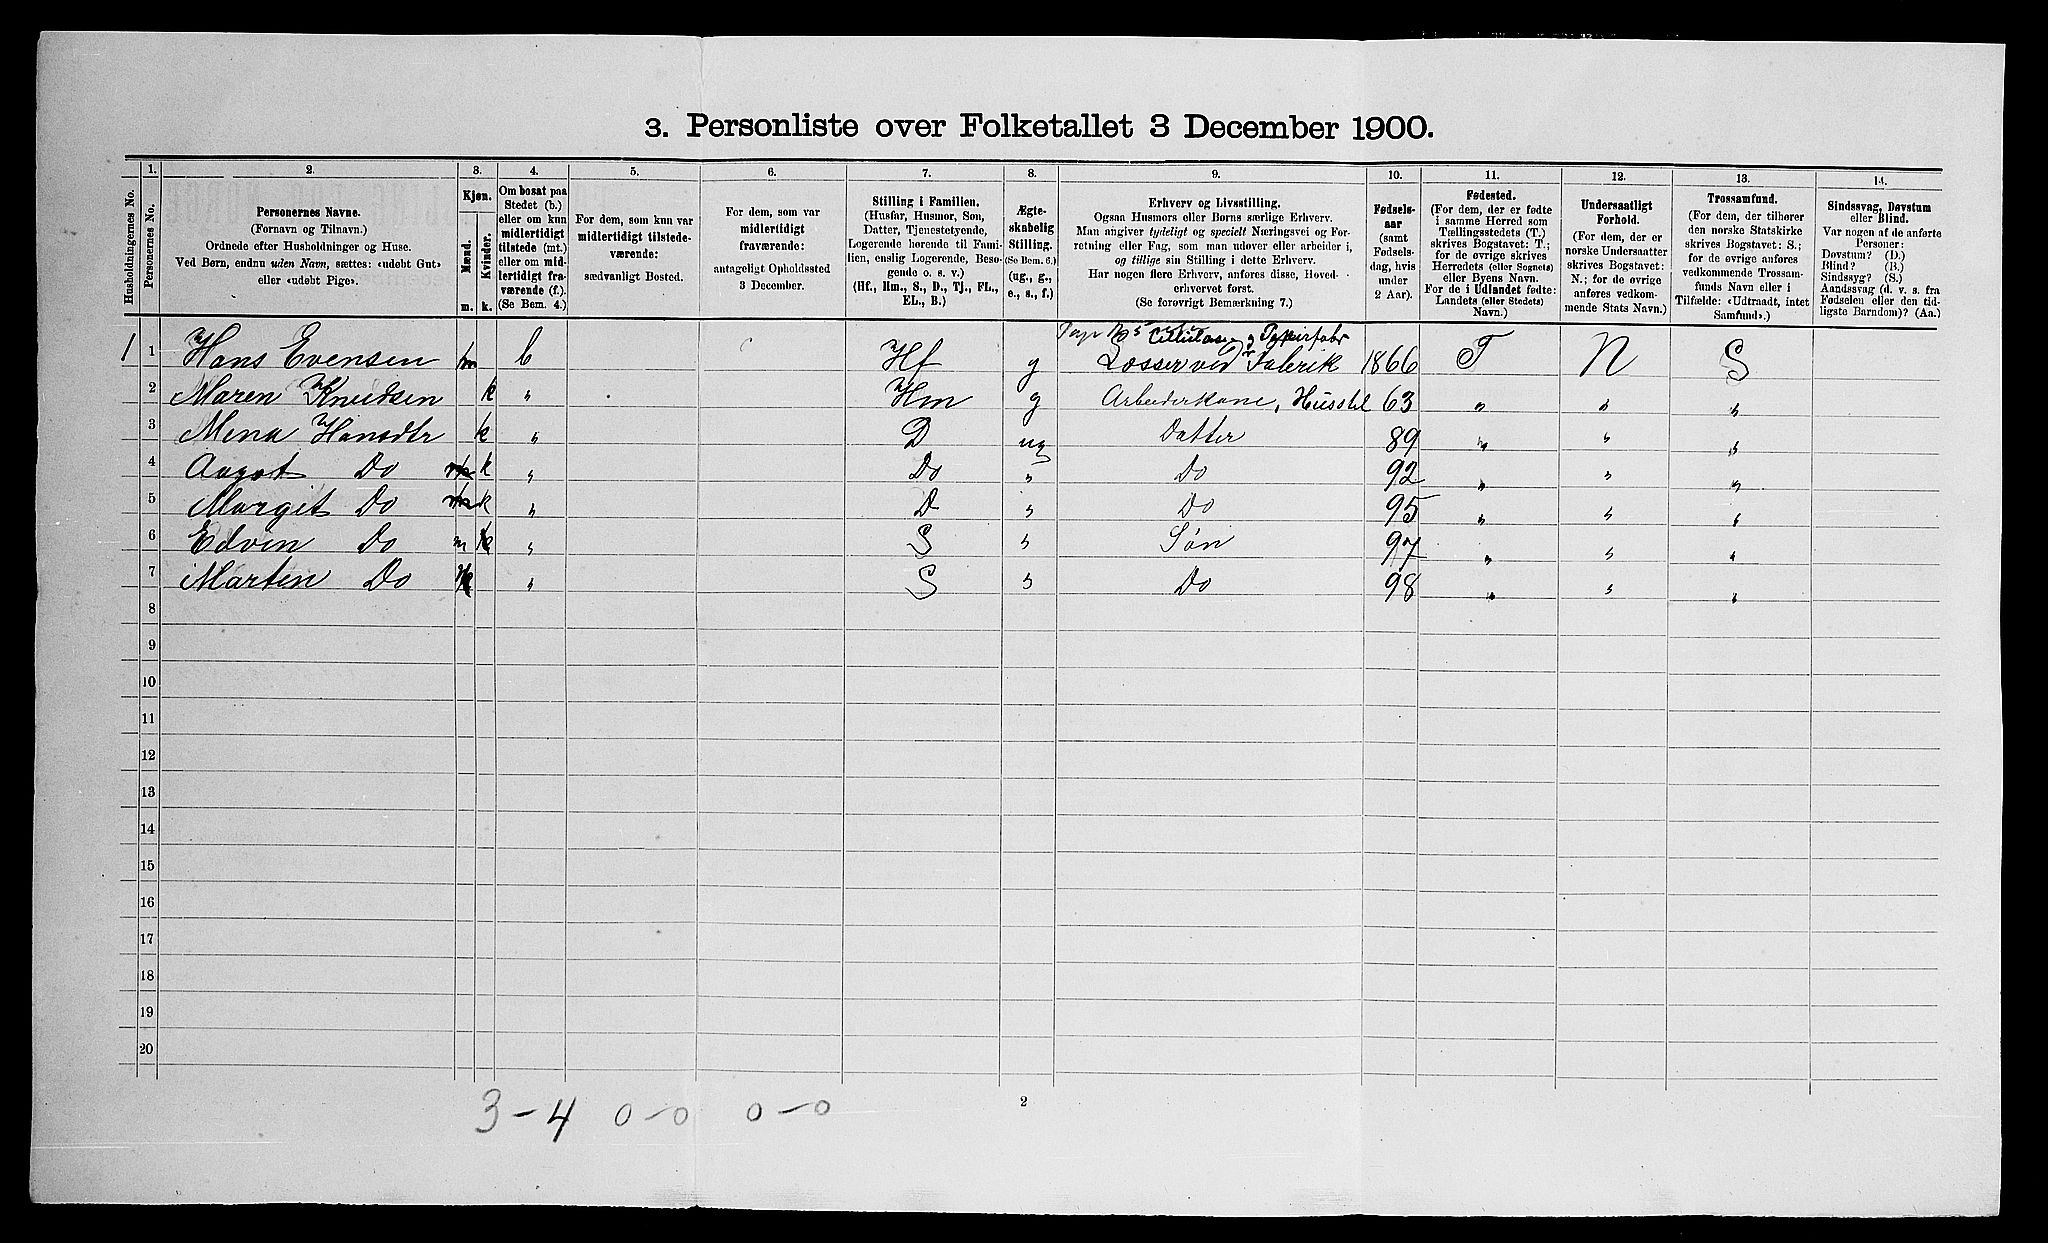 3. Personliste over Folketallet 3 December 1900.
Husholdningernes No.
1. Personernes No.
2. Personernes Navne.
(Fornavn og Tilnavn.)
Ordnede efter Husholdninger og Huse.
Ved Børn, endnu uden Navn, sættes: «udøbt Gut»
eller «udøbt Pige».
3. Kjøn.
Mænd. Kvinder.
m. k.
4.
Om bosat paa
Stedet (b.)
eller om kun
midlertidigt
tilstede (mt.)
eller om mid-
lertidigt fra-
værende (f.).
(Se Bem. 4.)
5.
For dem, som kun var
midlertidigt tilstede-
værende:
sædvanligt Bosted.
6.
For dem, som var
midlertidigt
fraværende:
antageligt Opholdssted
3 December.
7.
Stilling i Familien.
(Husfar, Husmor, Søn,
Datter, Tjenestetyende,
Logerende hørende til Fami-
lien, enslig Logerende, Besø-
gende o. s. v.)
(Hf., Hm., S., D., Tj., FL.,
EL., B.)
8.
Ægte-
skabelig
Stilling.
(Se Bem. 6.)
(ug., g.,
e., s., f.)
9.
Erhverv og Livsstilling.
Ogsaa Husmors eller Børns særlige Erhverv.
Man angiver tydeligt og specielt Næringsvei og For-
retning eller Fag, som man udøver eller arbeider i,
og tillige sin Stilling i dette Erhverv.
Har nogen flere Erhverv, anføres disse, Hoved-
erhvervet først.
(Se forøvrigt Bemærkning 7.)
10.
Fødsels-
aar
(samt
Fødsels-
dag, hvis
under
2 Aar).
11.
Fødested.
(For dem, der er fødte
i samme Herred som
Tællingsstedets (T.)
skrives Bogstavet: T.;
for de øvrige skrives
Herredets (eller Sognets)
eller Byens Navn.
For de i Udlandet fødte:
Landets (eller Stedets)
Navn.)
12.
Undersaatligt
Forhold.
(For dem, der er
norske Undersaatter
skrives Bogstavet:
N.; for de øvrige
anføres vedkom-
mende Stats Navn.)
13.
Trossamfund.
(For dem, der tilhører
den norske Statskirke
skrives Bogstavet: S.;
for de øvrige anføres
vedkommende Trossam-
funds Navn eller i
Tilfælde: «Udtraadt, intet
Samfund».)
14.
Sindssvag, Døvstum
eller Blind.
Var nogen af de anførte
Personer:
Døvstum? (D.)
Blind? (B.)
Sindssyg? (S.)
Aandssvag (d. v. s. fra
Fødselen eller den tid-
ligste Barndom)? (Aa.)
Cellulose og Papirfabr
1 1 Hans Evensen m b Hf g Læsser ved Fabrik 1866 T N S
2 Maren Knudsen k " Hm g Arbeiderkone, Husstel 63 " " "
3 Mena Hansdtr k " D ug Datter 89 " " "
4 Aagot Do k " Do " Do 92 " " "
5 Margit Do k " D " Do 95 " " "
6 Edvin Do m " S " Søn 97 " " "
7 Marten Do " S " Do 98 " " "
8
9
10
11
12
13
14
15
16
17
18
19
20
2
3-4 0-0 0-0